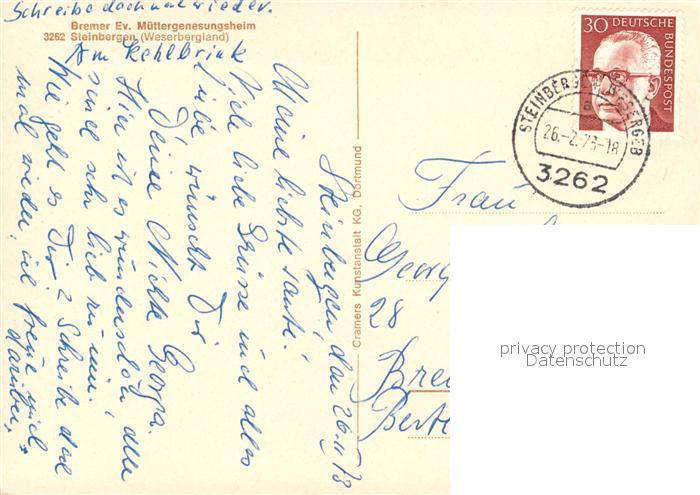 Schreibe doch mal wieder.
Bremer Ev. Müttergenesungsheim
3262 Steinbergen (Weserbergland)
Am Kehlbrink
Steinbergen, den 26. II 73
Meine liebste Tante!
Viele liebe Grüsse und alles
Liebe wünscht Dir
Deine Nichte Georga.
Hier ist es wunderschön, alle
sind sehr lieb zu mir.
Wie geht es Dir? Schreibe doch
mal wieder, ich freue mich
darüber.
Cramers Kunstanstalt KG, Dortmund
30 DEUTSCHE BUNDESPOST
STEINBERGEN
26.-2.73-18
a
3262
Frau
Georg
28
Bre
privacy protection
Datenschutz